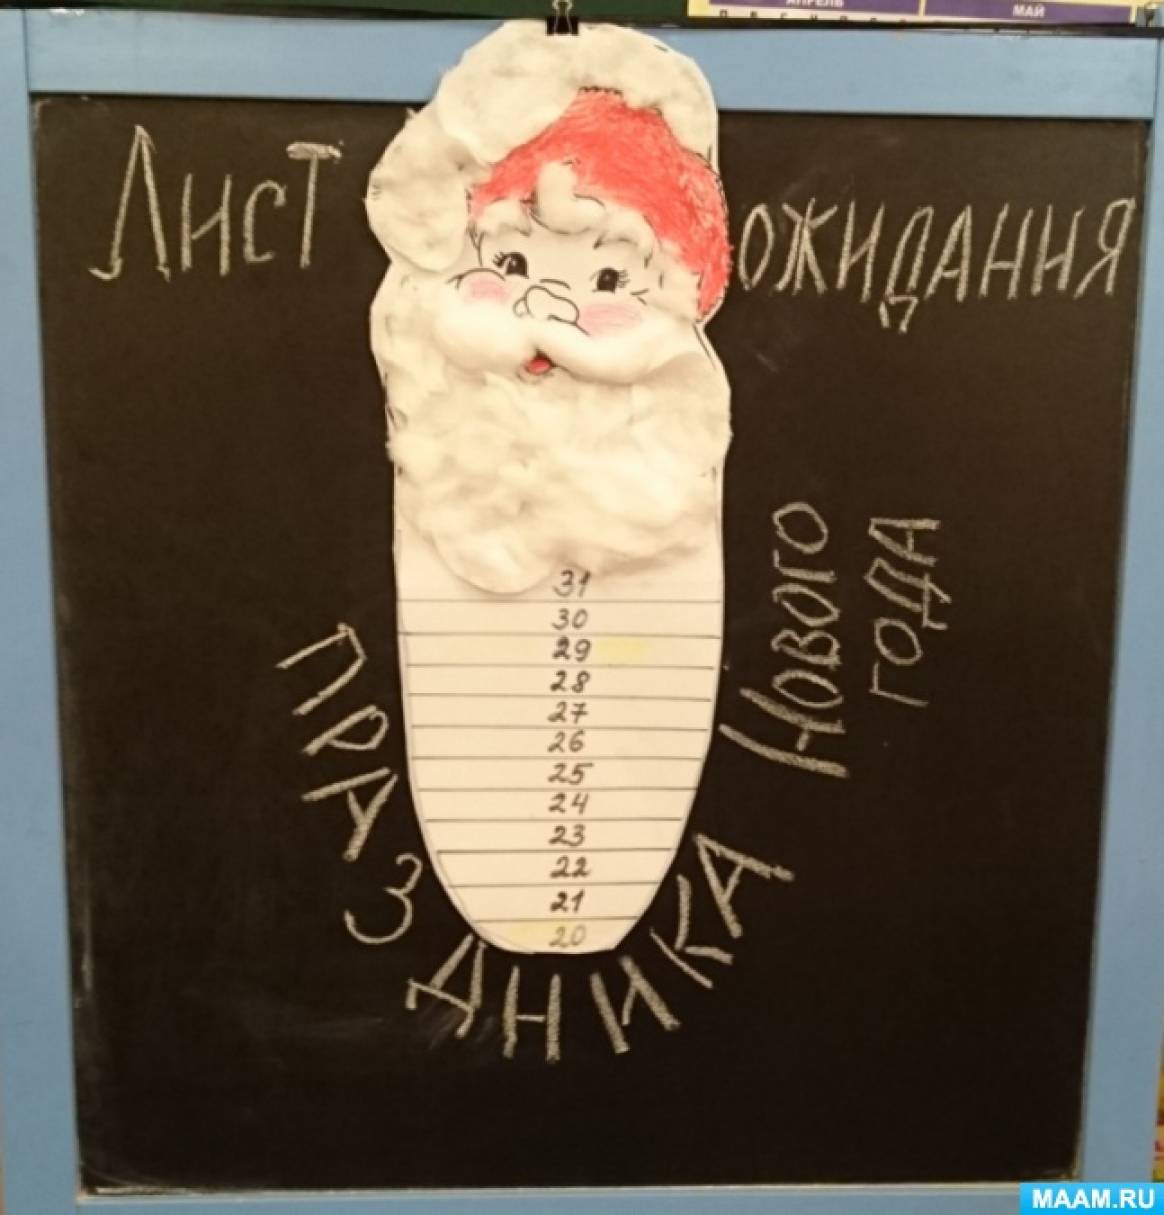 АПРЕЛЬ
МАЙ
Лист ожидания
праздника Нового
года
31
30
29
28
27
26
25
24
23
22
21
20
MAAM.RU